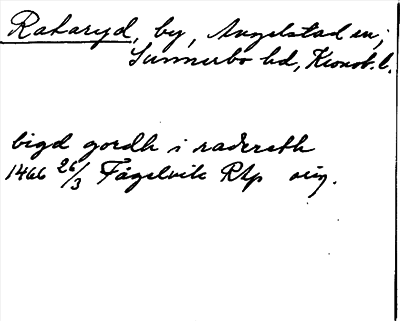 Rataryd, by, Angelstad sn,
Sunnerbo hd, Kronob. l.
bigd gordh i radereth
1466 26/3 Fågelvik Rkp orig.